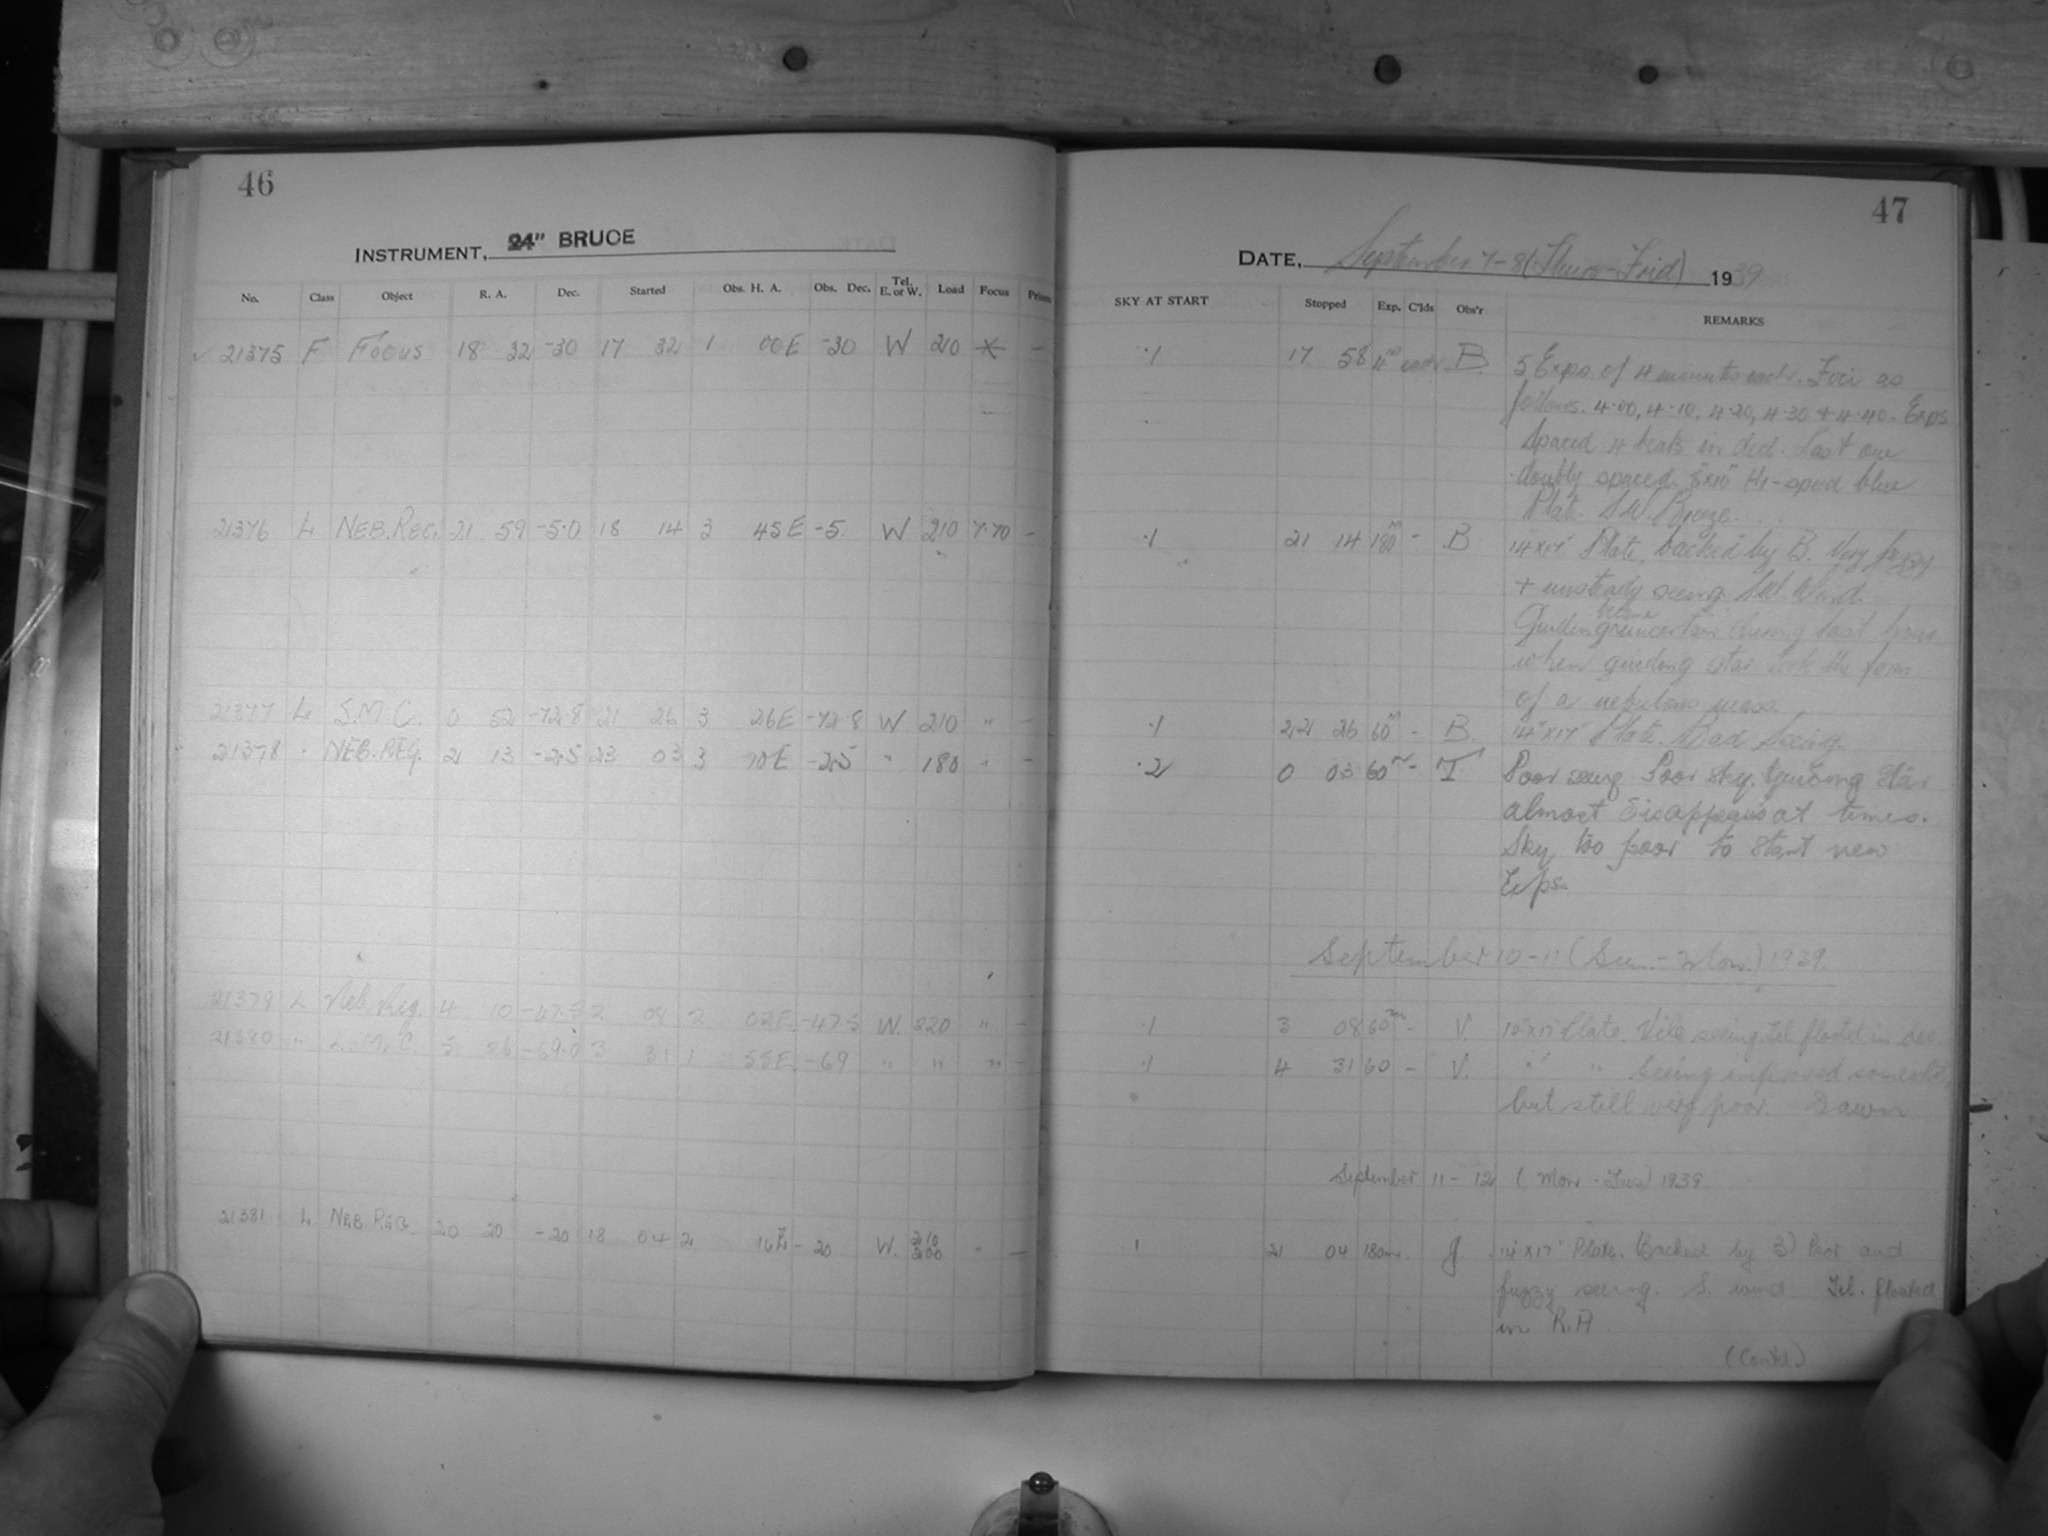 46
INSTRUMENT, 24" BRUCE
No. Class Object R. A. Dec. Started Obs. H. A. Obs. Dec. Tel. E. or W. Load Focus Prism
21375 F Focus 18 32 -30 17 32 1 00E -30 W 210 X -
21376 L NEB.REG. 21 59 -5.0 18 14 3 45E -5. W 210 7.70 -
21377 L S.M.C. 0 52 -72.8 21 26 3 26E -72.8 W 210 " -
21378 " NEB.REG. 2 13 -2.5 23 03 3 10E -2.5 " 180 " -
21379 L Neb. Reg. 4 10 -47.5 2 08 2 02E -47.5 W. 220 " -
21380 " L.M.C. 5 26 -69.0 3 31 1 55E -69 " " " -
21381 L NEB.REG. 20 20 -20 18 04 2 16E -20 W. 210 200 " -
47
DATE, September 7-8 (Thurs-Frid) 1939
SKY AT START Stopped Exp. C'lds Obs'r REMARKS
.1 17 58 4m each B. 5 Exps. of 4 minutes each. Foci as
follows. 4.00, 4.10, 4.20, 4.30 & 4.40. Exps
spaced 4 beats in decl. Last one
doubly spaced. 8"x10" Hi-speed blue
Plate. SW. Breeze.
.1 21 14 180m - B 14"x17" Plate, backed by B. Very fuzzy
+ unsteady seeing. SW. Wind.
Guiding became uncertain during last hour
when guiding star took the form
of a nebulous mass.
.1 22 26 60m - B. 14"x17" Plate. Bad Seeing.
.2 0 03 60m - T Poor seeing Poor sky. Guiding star
almost disappears at times.
Sky too poor to start new
Exps.
September 10-11 (Sun.-Mon.) 1939.
.1 3 08 60m - V. Plate. Vile seeing, tel. floated in dec.
.1 4 31 60 - V. " " Seeing improved somewhat,
but still very poor. Dawn
September 11-12 (Mon-Tues) 1939
.1 21 04 180m. J 14"x17" Plate. (Backed by B) Poor and
fuzzy seeing. S. wind. Tel. floated
in R.A.
(Contd)